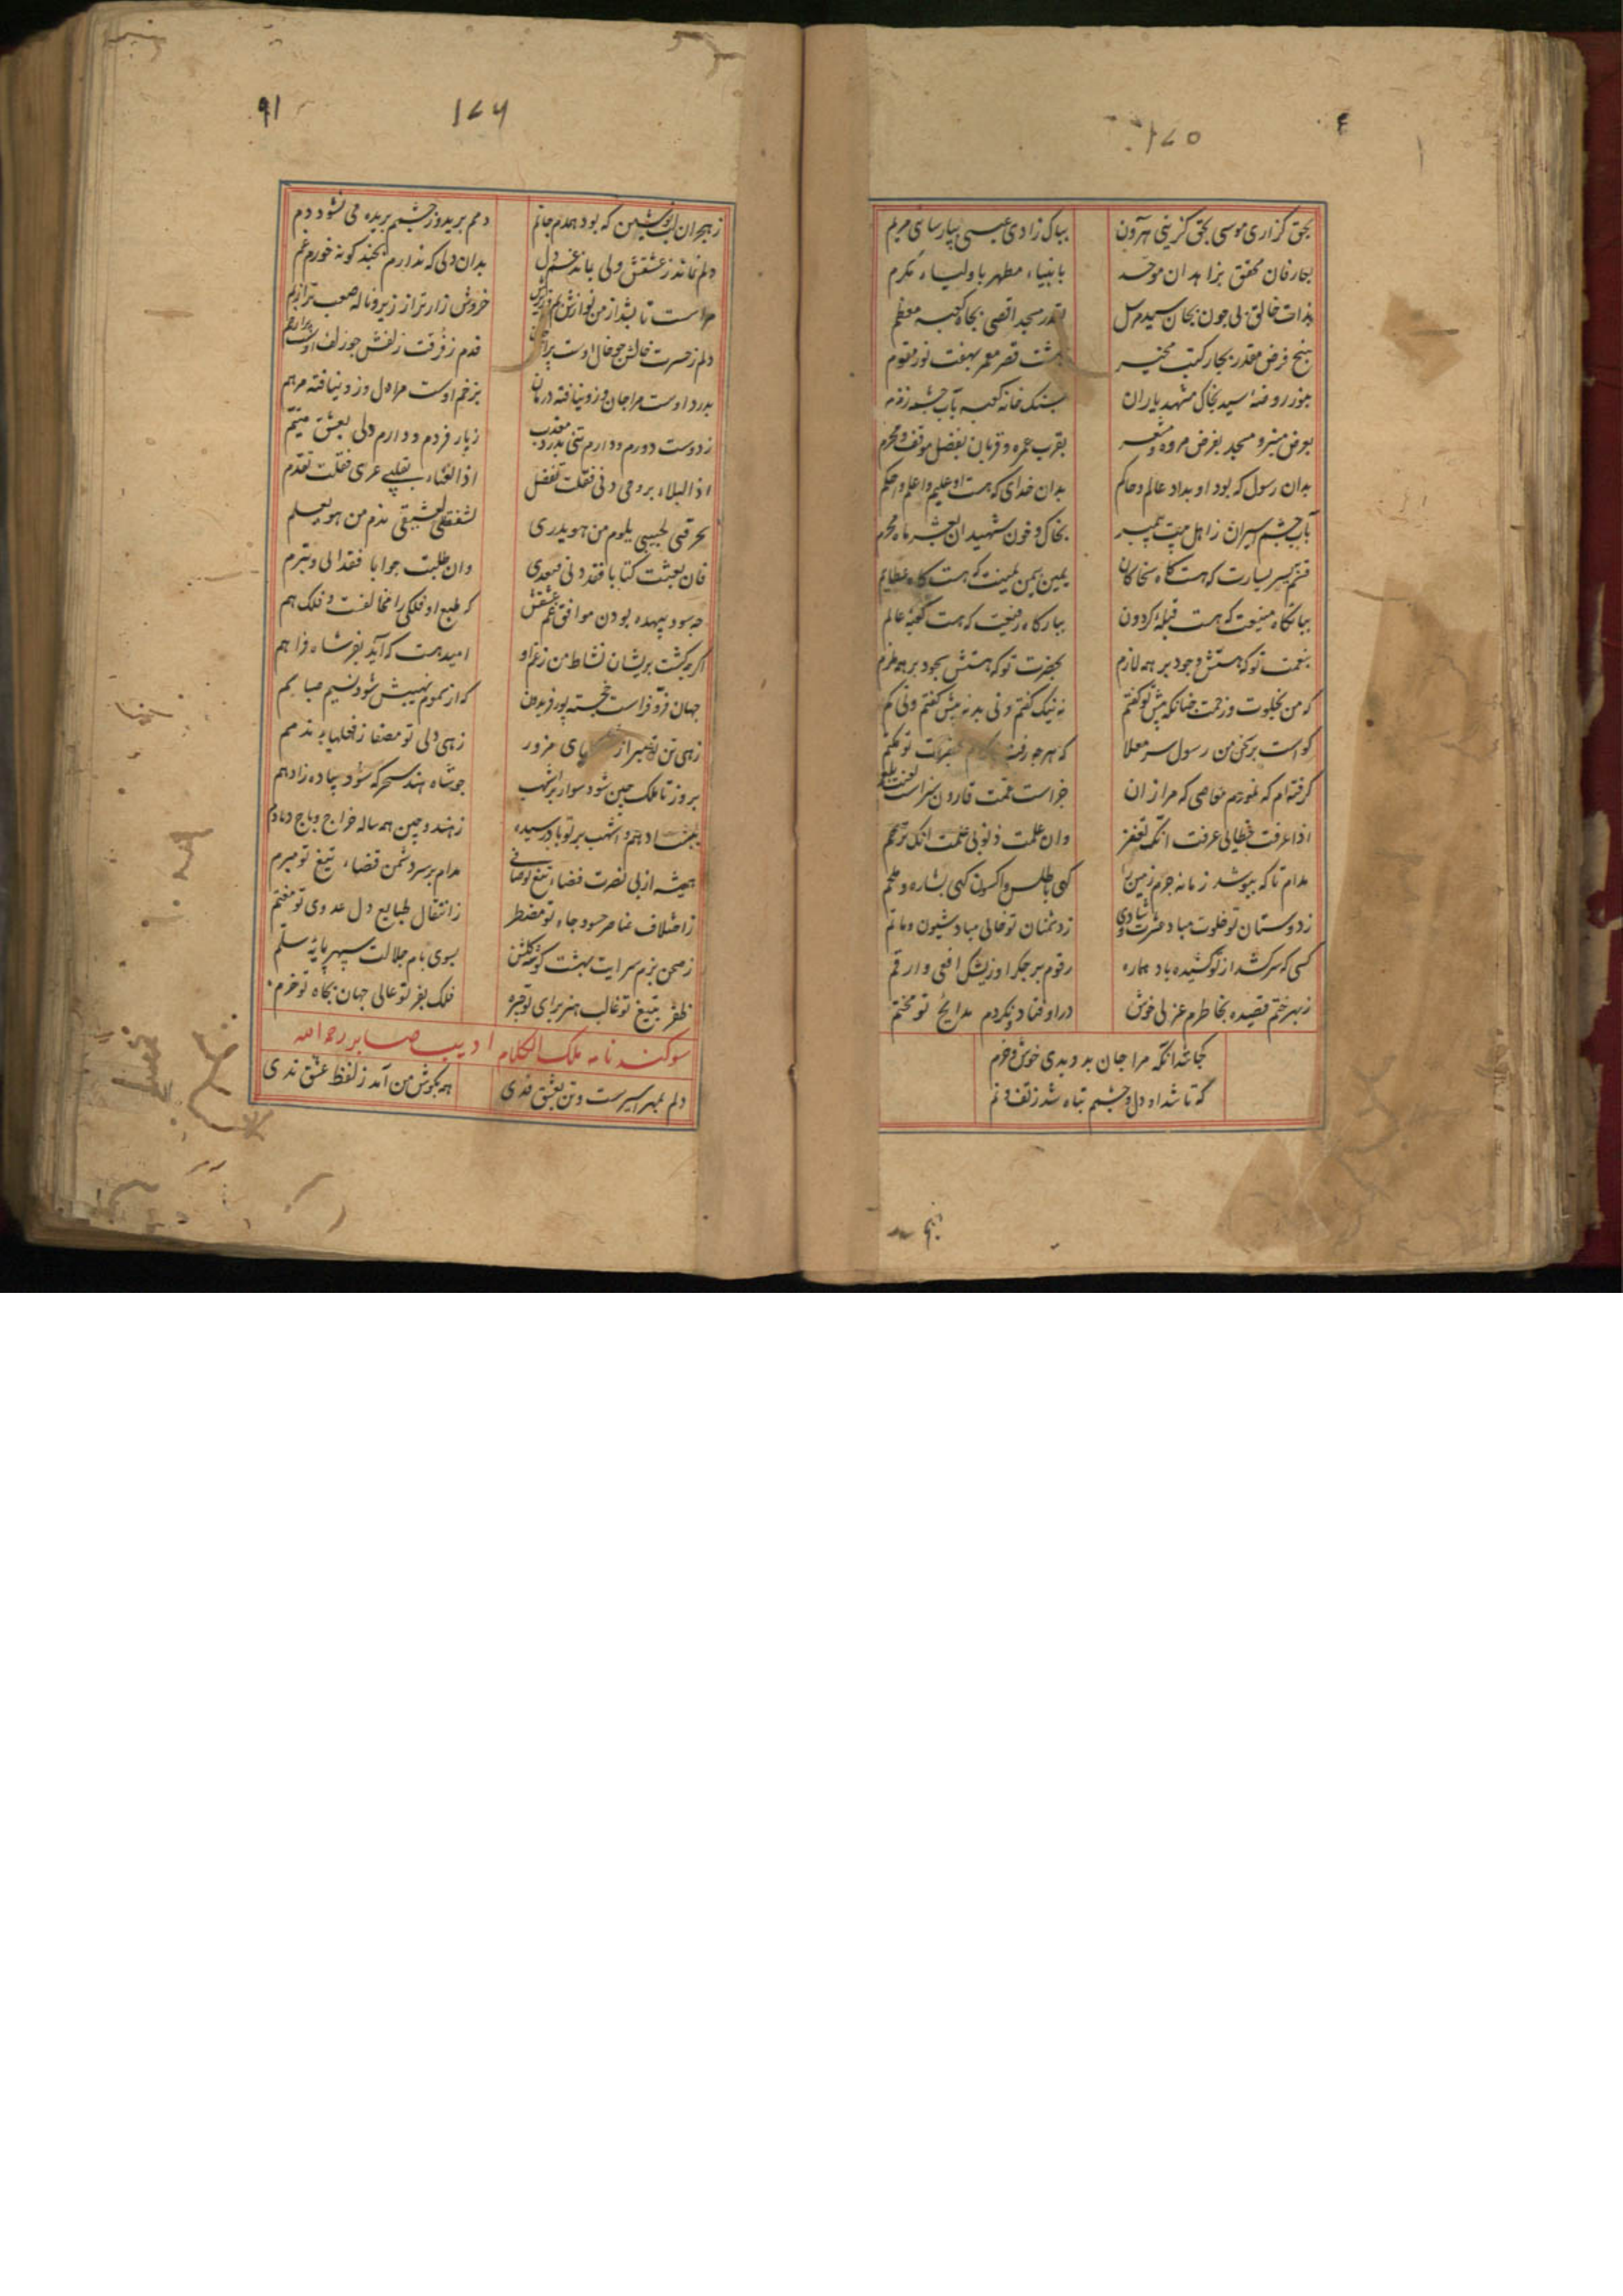 ۱۷۵
بحق گزاری موسی بحق گزینی هرون بپاک زادی عیسی بپارسائی مریم
بعارفان محقق بزاهدان موحد بانبیاء مطهر باولیاء مکرم
بذات خالق بی چون بجان سید مرسل بقدر مسجد اقصی بجاه کعبه معظم
بپنج فرض مقدر بچار کتب بهشت قصر معمر بهفت نور مقوم
بنور روضه سید بخاک مشهد یاران بسنک خانه کعبه بآب چشمه زمزم
بعرض منبر و مسجد بفرض مروه و مشعر بقرب عمره و قربان بفضل موقف و محرم
بدان رسول که بود او بداد عالم و حاکم بدان خدای که هست او علیم و اعلم و احکم
بآب چشم اسیران ز اهل بیت پیمبر بخاک و خون شهیدان بعشر ماه محرم
قسم بیسر یسارت که هست کاه سخا کان یمین بیمن یمینت که هست کاه عطا یم
ببانکاه منیعت که هست قبله کردون ببارکاه رفیعت که هست کعبه عالم
بنعمت تو که هستش وجود بر همه لازم بحضرت تو که هستش سجود بر همه ملزم
که من بخلوت و زحمت چنانکه پیش تو کفتم نه نیک کفتم و نی بد نه بیش کفتم و نی کم
کواست بر سخن من رسول سر معلا که هرچه رفت تو
کرفته ام که نخوردیم معاصی که مرا زان جزاست نعمت قارون سزاست لعنت بلعم
اذا عرفت خطائی عرفت انک تغفر وان علمت ذنوبی علمت انک ترحم
مدام تا که بپوشد زمانه جرم زمین را کهی باطلس و اکسون کهی بشاره و ملحم
ز دوستان تو خلوت مباد عشرت و شادی ز دشمنان تو خالی مباد شیون و ماتم
کسی که سرکشد از تو کشیده باد هماره رقوم بر جکر او ز نیش افعی و ارقم
ز بهر ختم قصیده بخاطرم غزلی خوش دراوفتاد و نکردم مدایح تو مختم
کجا شد آنکه مرا جان بدو بدی خوش و خرم
که تا شد او دل و چشمم تباه شد ز تف و نم
۹۱
۱۷۶
ز هجران لب نوشین که بود همدم جانم دمم برید و ز چشمم بریده می نشود دم
دلم نماند ز عشقش ولی بماند غم دل بدان دلی که ندارم بچند کونه خورم غم
مراست تا بشد از من نوازش خروش زارتر از زیر و ناله صعب تر از بم
دلم ز حسرت خالش چو خال اوست قدم ز فرقت زلفش چو زلف اوست
بدرد اوست مرا جان و زو نیافته درمان بزخم اوست مرا دل و زو نیافته مرهم
ز دوست دورم و دارم تنی بدرد معذب ز یار فردم و دارم دلی بعشق متیم
اذا البلاء بروحی دنی فقلت تفضل اذا العناء بقلبی عری فقلت تقدم
بحرقتی لحبیبی یلوم من هو یدری لشغفتی لعشیقی یذم من هو یعلم
فان بعثت کتابا فقد دنی فتعدی وان طلبت جوابا فقد ابی وتبرم
چه سود بیهده بودن موافق غم عشقش که طبع او فلکی را مخالفت و فلک هم
اکرچه کشت پریشان نشاط من ز غم او امید هست که آید بفر شاه فراهم
جهان فر و فراست خجسته پور فریدون که از سموم نهیبش شود نسیم صبا سم
زهی تن تو مبرا ز های مزور زهی دلی تو مصفا ز فعلهای مذمم
بروز تا ملک چین شود سوار بر اشهب چو شاه هند سحرکه شود پیاده ز ادهم
ادهم و اشهب بر تو باد رسیده ز هند و چین همه ساله خراج و باج دمادم
همیشه از پی نصرت فضاء تیغ تو صافی مدام بر سر دشمن قضاء تیغ تو مبرم
ز اختلاف عناصر حسود جاه تو مضطر ز انتقال طبایع دل عدوی تو مغتم
ز صحن بزم سرایت بهشت کوشه کلشن بسوی بام جلالت سپهر پایه سلم
ظفر بتیغ تو غالب هنر برای تو چیره فلک بفر تو عالی جهان بجاه تو خرم
سوکند نامه ملک الکلام ادیب صابر رحمه الله
دلم بمهر اسیرست و تن بعشق فدی همه بکوش من آمد ز لفظ عشق ندی